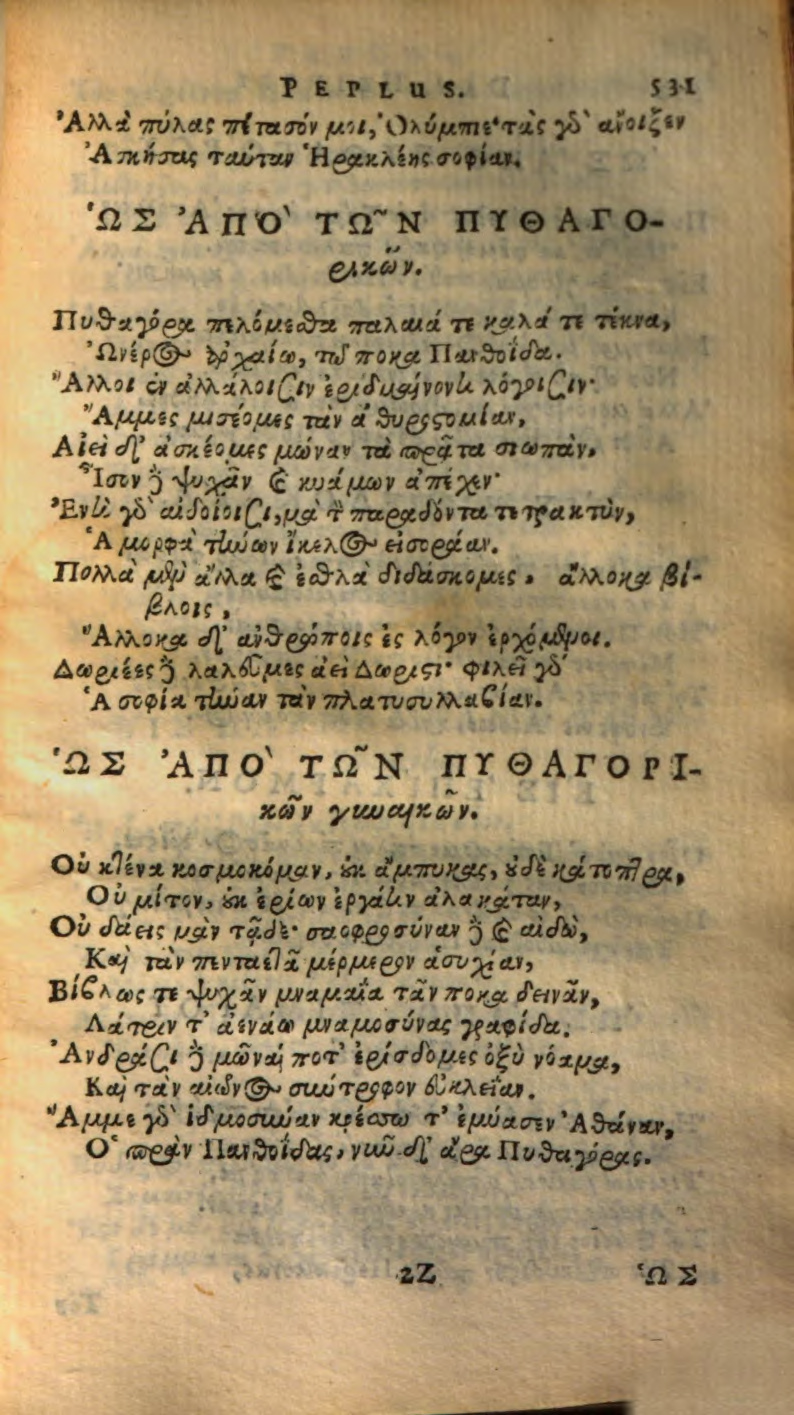 PEPLUS. 531
Ἀλλὰ πύλας πέτασόν μοι, Ὀλύμπιε· τὰς γὸ ἄνοιξεν
Ἀσκήσας ταύταν Ἡρακλέης σοφίαν.
ὩΣ ἈΠῸ ΤΩ͂Ν ΠΥΘΑΓΟ-
ρικῶν.
Πυθαγόρα πελόμεσθα παλαιά τε καλά τε τέκνα,
Ὠνέρος ἀρχαίω, τῶ ποκα Πανθοΐδα.
Ἄλλοι ἐν ἀλλάλοισιν ἐριδμαίνοντι λόγοισιν·
Ἄμμες μισέομες τὰν ἀθυροστομίαν,
Αἰεὶ δ' ἀσκέομες μώναν τὰ πρᾶτα σιωπὰν,
Ἴσεν δὲ ψυχᾶν καὶ κυάμων ἀπέχεν·
Ἐντὶ γὸ αἰδοίοισι, μὰ τὸν παραδόντα τετρακτὺν,
Ἁ μορφὰ τήνων ἴκελος εἰσοράαν.
Πολλὰ μὲν ἄλλα καὶ ἐσθλὰ διδάσκομες, ἄλλοκα βί-
βλοις,
Ἄλλοκα δ' ἀνθρώποις ἐς λόγον ἐρχόμενοι.
Δωριέες δὲ λαλοῦμες ἀεὶ Δωριστί· φιλεῖ γὸ
Ἁ σοφία τήναν τὰν πλατυσυλλαβίαν.
ὩΣ ἈΠῸ ΤΩ͂Ν ΠΥΘΑΓΟΡΙ-
κῶν γυναικῶν.
Οὐ κτένα κοσμοκόμαν, οὐκ ἄμπυκας, οὐδὲ κάτοπτρα,
Οὐ μίτον, οὐκ ἐρίων ἐργάτιν ἀλακάταν,
Οὐ δάεις μὰν τᾷδε· σαοφροσύναν δὲ καὶ αἰδῶ,
Καὶ τὰν πενταετῆ μέρμερον ἁσυχίαν,
Βίβλως τε ψυχᾶν μναμαῖα τᾶν ποκα δεινᾶν,
Λάτριν τ' ἀενάω μναμοσύνας γραφίδα.
Ἀνδράσι δὲ μῶναι ποτ' ἐρίσδομες ὀξὺ νόαμα,
Καὶ τὰν αἰῶνος σύντροφον εὔκλειαν.
Ἄμμε γὸ ἰδμοσύναν κρέσσω τ' ἐμύασεν Ἀθάναν,
Ὁ πρὰν Πανθοΐδας, νῦν δ' ἄρα Πυθαγόρας.
2Z ὩΣ